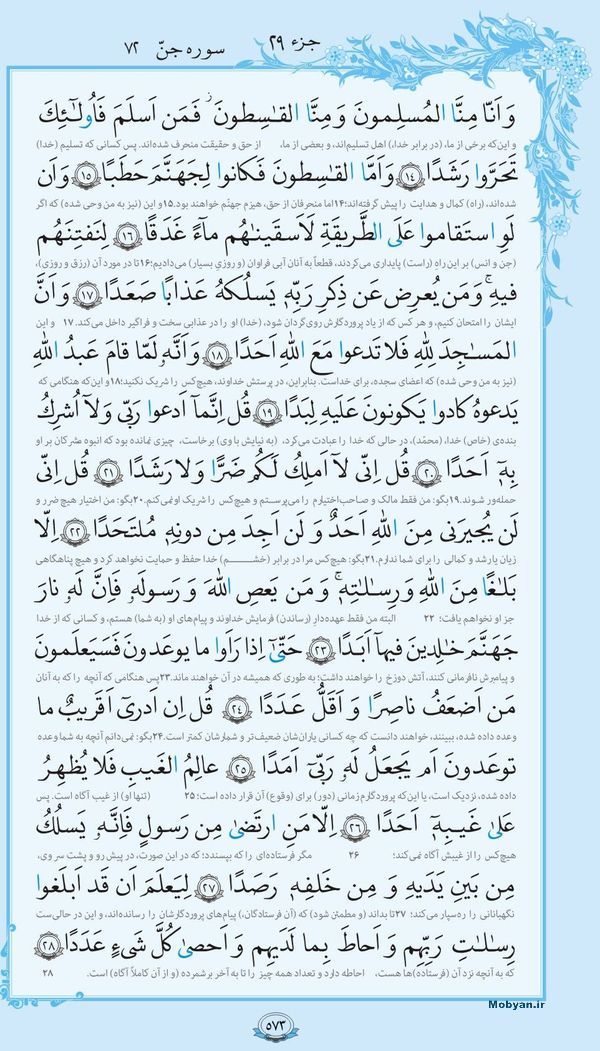 جزء ۲۹
سوره جنّ ۷۲
وَ اَنّا مِنَّا المُسلِمونَ وَ مِنَّا القـٰسِطونَ ۖ فَمَن اَسلَمَ فَاُولـٰٓئِكَ
و این‌که برخی از ما، (در برابر خدا) اهل تسلیم‌اند، و بعضی از ما، از حق و حقیقت منحرف شده‌اند. پس کسانی که تسلیم (خدا)
تَحَرَّوا رَشَدًا ﴿۱۴﴾ وَ اَمَّا القـٰسِطونَ فَكانوا لِجَهَنَّمَ حَطَبًا ﴿۱۵﴾ وَ اَن
شده‌اند، (راه) کمال و هدایت را پیش گرفته‌اند؛ ۱۴ اما منحرفان از حق، هیزم جهنّم خواهند بود. ۱۵ و این (نیز به من وحی شده) که اگر
لَوِ استَقاموا عَلَی الطَّریقَةِ لَاَسقَینـٰهُم ماۤءً غَدَقًا ﴿۱۶﴾ لِنَفتِنَهُم
(جن و انس) بر این راه (راست) پایداری می‌کردند، قطعاً به آنان آبی فراوان (و روزیِ بسیار) می‌دادیم؛ ۱۶ تا در مورد آن (رزق و روزی)،
فیهِ ۚ وَ مَن یُعرِض عَن ذِكرِ رَبِّهٖ یَسلُكهُ عَذابًا صَعَدًا ﴿۱۷﴾ وَ اَنَّ
ایشان را امتحان کنیم، و هر کس که از یاد پروردگارش روی‌گردان شود، (خدا) او را در عذابی سخت و فراگیر داخل می‌کند. ۱۷ و این
المَسـٰجِدَ لِلّٰهِ فَلا تَدعوا مَعَ اللّٰهِ اَحَدًا ﴿۱۸﴾ وَ اَنَّهٗ لَمّا قامَ عَبدُ اللّٰهِ
(نیز به من وحی شده) که اعضای سجده، برای خداست. بنابراین، در پرستش خداوند، هیچ‌کس را شریک نکنید؛ ۱۸ و این‌که هنگامی که
یَدعوهُ كادوا یَكونونَ عَلَیهِ لِبَدًا ﴿۱۹﴾ قُل اِنَّمآ اَدعوا رَبّی وَ لاۤ اُشرِكُ
بنده‌ی (خاص) خدا، (محمّد)، در حالی که خدا را عبادت می‌کرد، (به نیایش با وی) برخاست، چیزی نمانده بود که انبوه مشرکان بر او
بِهٖۤ اَحَدًا ﴿۲۰﴾ قُل اِنّی لاۤ اَملِكُ لَكُم ضَرًّا وَ لا رَشَدًا ﴿۲۱﴾ قُل اِنّی
حمله‌ور شوند. ۱۹ بگو: من فقط مالک و صاحب‌اختیارم را می‌پرستم و هیچ‌کس را شریک او نمی‌کنم. ۲۰ بگو: من اختیار هیچ ضرر و
لَن یُجیرَنی مِنَ اللّٰهِ اَحَدٌ وَ لَن اَجِدَ مِن دونِهٖ مُلتَحَدًا ﴿۲۲﴾ اِلّا
زیان یا رشد و کمالی را برای شما ندارم. ۲۱ بگو: هیچ‌کس مرا در برابر (خشم) خدا حفظ و حمایت نخواهد کرد و هیچ پناهگاهی
بَلـٰغًا مِنَ اللّٰهِ وَ رِسـٰلـٰتِهٖ ۚ وَ مَن یَعصِ اللّٰهَ وَ رَسولَهٗ فَاِنَّ لَهٗ نارَ
جز او نخواهم یافت؛ ۲۲ البته من فقط عهده‌دار (رساندن) فرمایش خداوند و پیام‌های او (به شما) هستم، و کسانی که از خدا
جَهَنَّمَ خـٰلِدینَ فیهآ اَبَدًا ﴿۲۳﴾ حَتّیٰٓ اِذا رَاَوا ما یوعَدونَ فَسَیَعلَمونَ
و پیامبرش نافرمانی کنند، آتش دوزخ را خواهند داشت؛ به طوری که همیشه در آن خواهند ماند. ۲۳ پس هنگامی که آنچه را که به آنان
مَن اَضعَفُ ناصِرًا وَ اَقَلُّ عَدَدًا ﴿۲۴﴾ قُل اِن اَدریٓ اَقَریبٌ ما
وعده داده شده، ببینند، خواهند دانست که چه کسانی یاران‌شان ضعیف‌تر و شمارشان کمتر است. ۲۴ بگو: نمی‌دانم آنچه به شما وعده
توعَدونَ اَم یَجعَلُ لَهٗ رَبّیٓ اَمَدًا ﴿۲۵﴾ عالِمُ الغَیبِ فَلا یُظهِرُ
داده شده، نزدیک است، یا این‌که پروردگارم زمانی (دور) برای (وقوع) آن قرار داده است؛ ۲۵ (تنها او) از غیب آگاه است. پس
عَلیٰ غَیبِهٖۤ اَحَدًا ﴿۲۶﴾ اِلّا مَنِ ارتَضیٰ مِن رَسولٍ فَاِنَّهٗ یَسلُكُ
هیچ‌کس را از غیبش آگاه نمی‌کند؛ ۲۶ مگر فرستاده‌ای را که بپسندد؛ که در این صورت، در پیش رو و پشت سر وی،
مِن بَینِ یَدَیهِ وَ مِن خَلفِهٖ رَصَدًا ﴿۲۷﴾ لِیَعلَمَ اَن قَد اَبلَغوا
نگهبانانی را ره‌سپار می‌کند؛ ۲۷ تا بداند (و مطمئن شود) که (آن فرستادگان)، پیام‌های پروردگارشان را رسانده‌اند، و این در حالی‌ست
رِسـٰلـٰتِ رَبِّهِم وَ اَحاطَ بِما لَدَیهِم وَ اَحصیٰ كُلَّ شَیءٍ عَدَدًا ﴿۲۸﴾
که به آنچه نزد آن (فرستاده)ها هست، احاطه دارد و تعداد همه چیز را تا به آخر برشمرده (و از آن کاملاً آگاه) است. ۲۸
Mobyan.ir
۵۷۳